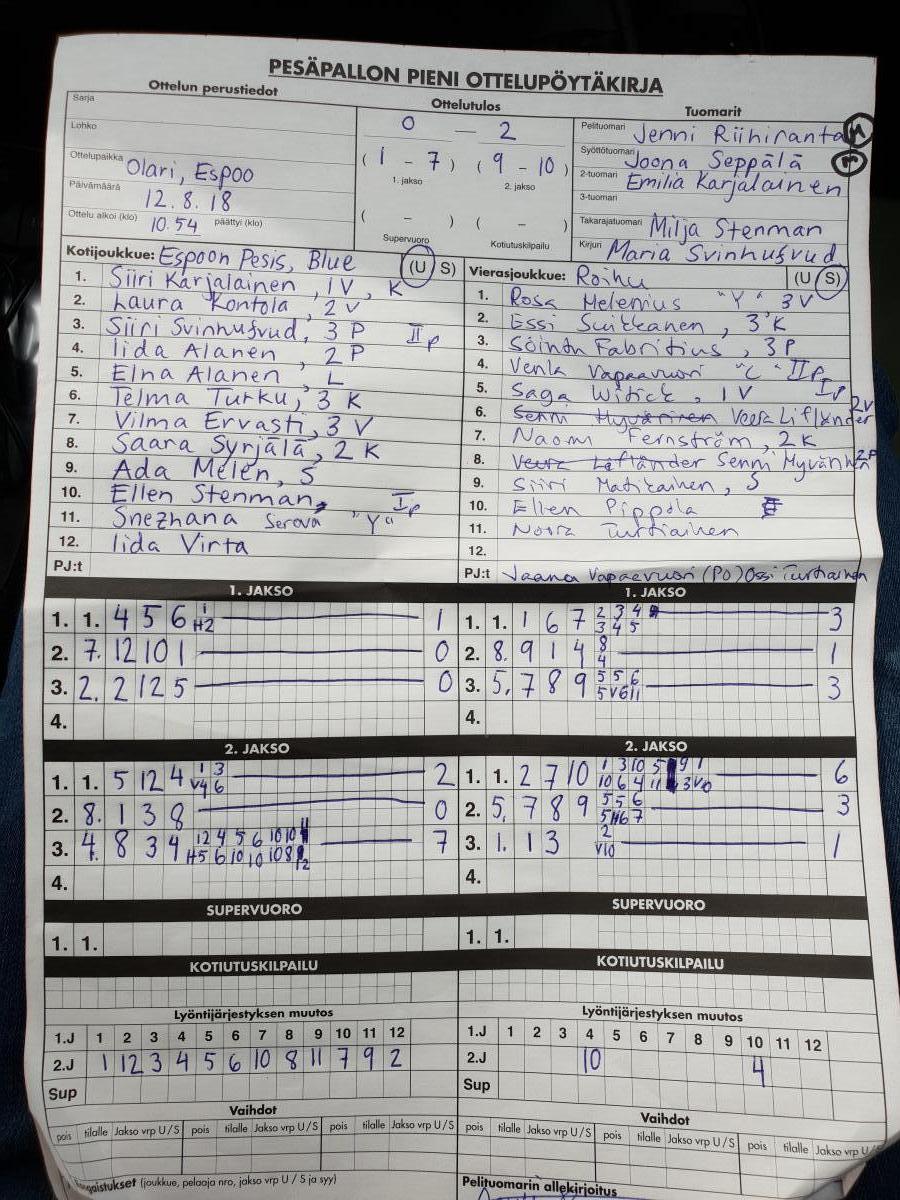 PESÄPALLON PIENI OTTELUPÖYTÄKIRJA
Ottelun perustiedot
Sarja
Lohko
Ottelupaikka Olari, Espoo
Päivämäärä 12.8.18
Ottelu alkoi (klo) 10.54 päättyi (klo)
Ottelutulos
0 — 2
( 1 - 7 ) ( 9 - 10 )
1. jakso 2. jakso
( - ) ( - )
Supervuoro Kotiutuskilpailu
Tuomarit
Pelituomari Jenni Riihiranta
Syöttötuomari Joona Seppälä
2-tuomari Emilia Karjalainen
3-tuomari
Takarajatuomari Milja Stenman
Kirjuri Maria Svinhufvud
Kotijoukkue: Espoon Pesis, Blue (U / S)
1. Siiri Karjalainen, 1V, K
2. Laura Kontola, 2V
3. Siiri Svinhufvud, 3P IIp
4. Iida Alanen, 2P
5. Elna Alanen, L
6. Telma Turku, 3K
7. Vilma Ervasti, 3V
8. Saara Syrjälä, 2K
9. Ada Melen, S
10. Ellen Stenman, Ip
11. Snezhana Serova "Y"
12. Iida Virta
PJ:t
Vierasjoukkue: Roihu (U / S)
1. Rosa Melenius "Y" 3V
2. Essi Suikkanen, 3K
3. Sointu Fabritius, 3P
4. Venla Vapaavuori "C" IIp
5. Saga Witick, 1V Ip
6. Senni Hyvärinen Veera Lifländer 2V
7. Naomi Fernström, 2K
8. Veera Lifländer Senni Hyvärinen 2P
9. Siiri Matikainen, S
10. Ellen Pippola
11. Noora Turtiainen
12.
PJ:t Jaana Vapaavuori (PO) Ossi Turtiainen
1. JAKSO
1. 1. 4 5 6 1 1
H2
2. 7. 12 10 1 0
3. 2. 2 12 5 0
4.
1. JAKSO
1. 1. 1 6 7 2 3 4 3
3 4 5
2. 8. 9 1 4 8 1
4
3. 5. 7 8 9 5 5 6 3
5 V6 11
4.
2. JAKSO
1. 1. 5 12 4 1 3 2
V4 6
2. 8. 1 3 8 0
3. 4. 8 3 4 12 4 5 6 10 10 7
H5 6 10 10 10 8 12
4.
2. JAKSO
1. 1. 2 7 10 1 3 10 5 9 1 6
10 6 4 11 3 V10
2. 5. 7 8 9 5 5 6 3
5 H6 7
3. 1. 1 3 2 1
V10
4.
SUPERVUORO
1. 1.
SUPERVUORO
1. 1.
KOTIUTUSKILPAILU
KOTIUTUSKILPAILU
Lyöntijärjestyksen muutos
1.J 1 2 3 4 5 6 7 8 9 10 11 12
2.J 1 12 3 4 5 6 10 8 11 7 9 2
Sup
Lyöntijärjestyksen muutos
1.J 1 2 3 4 5 6 7 8 9 10 11 12
2.J 10 4
Sup
Vaihdot
pois tilalle Jakso vrp U / S pois tilalle Jakso vrp U / S pois tilalle Jakso vrp U / S
Vaihdot
pois tilalle Jakso vrp U / S pois tilalle Jakso vrp U / S pois tilalle Jakso vrp U / S
(joukkue, pelaaja nro, jakso vrp U / S ja syy)
Pelituomarin allekirjoitus